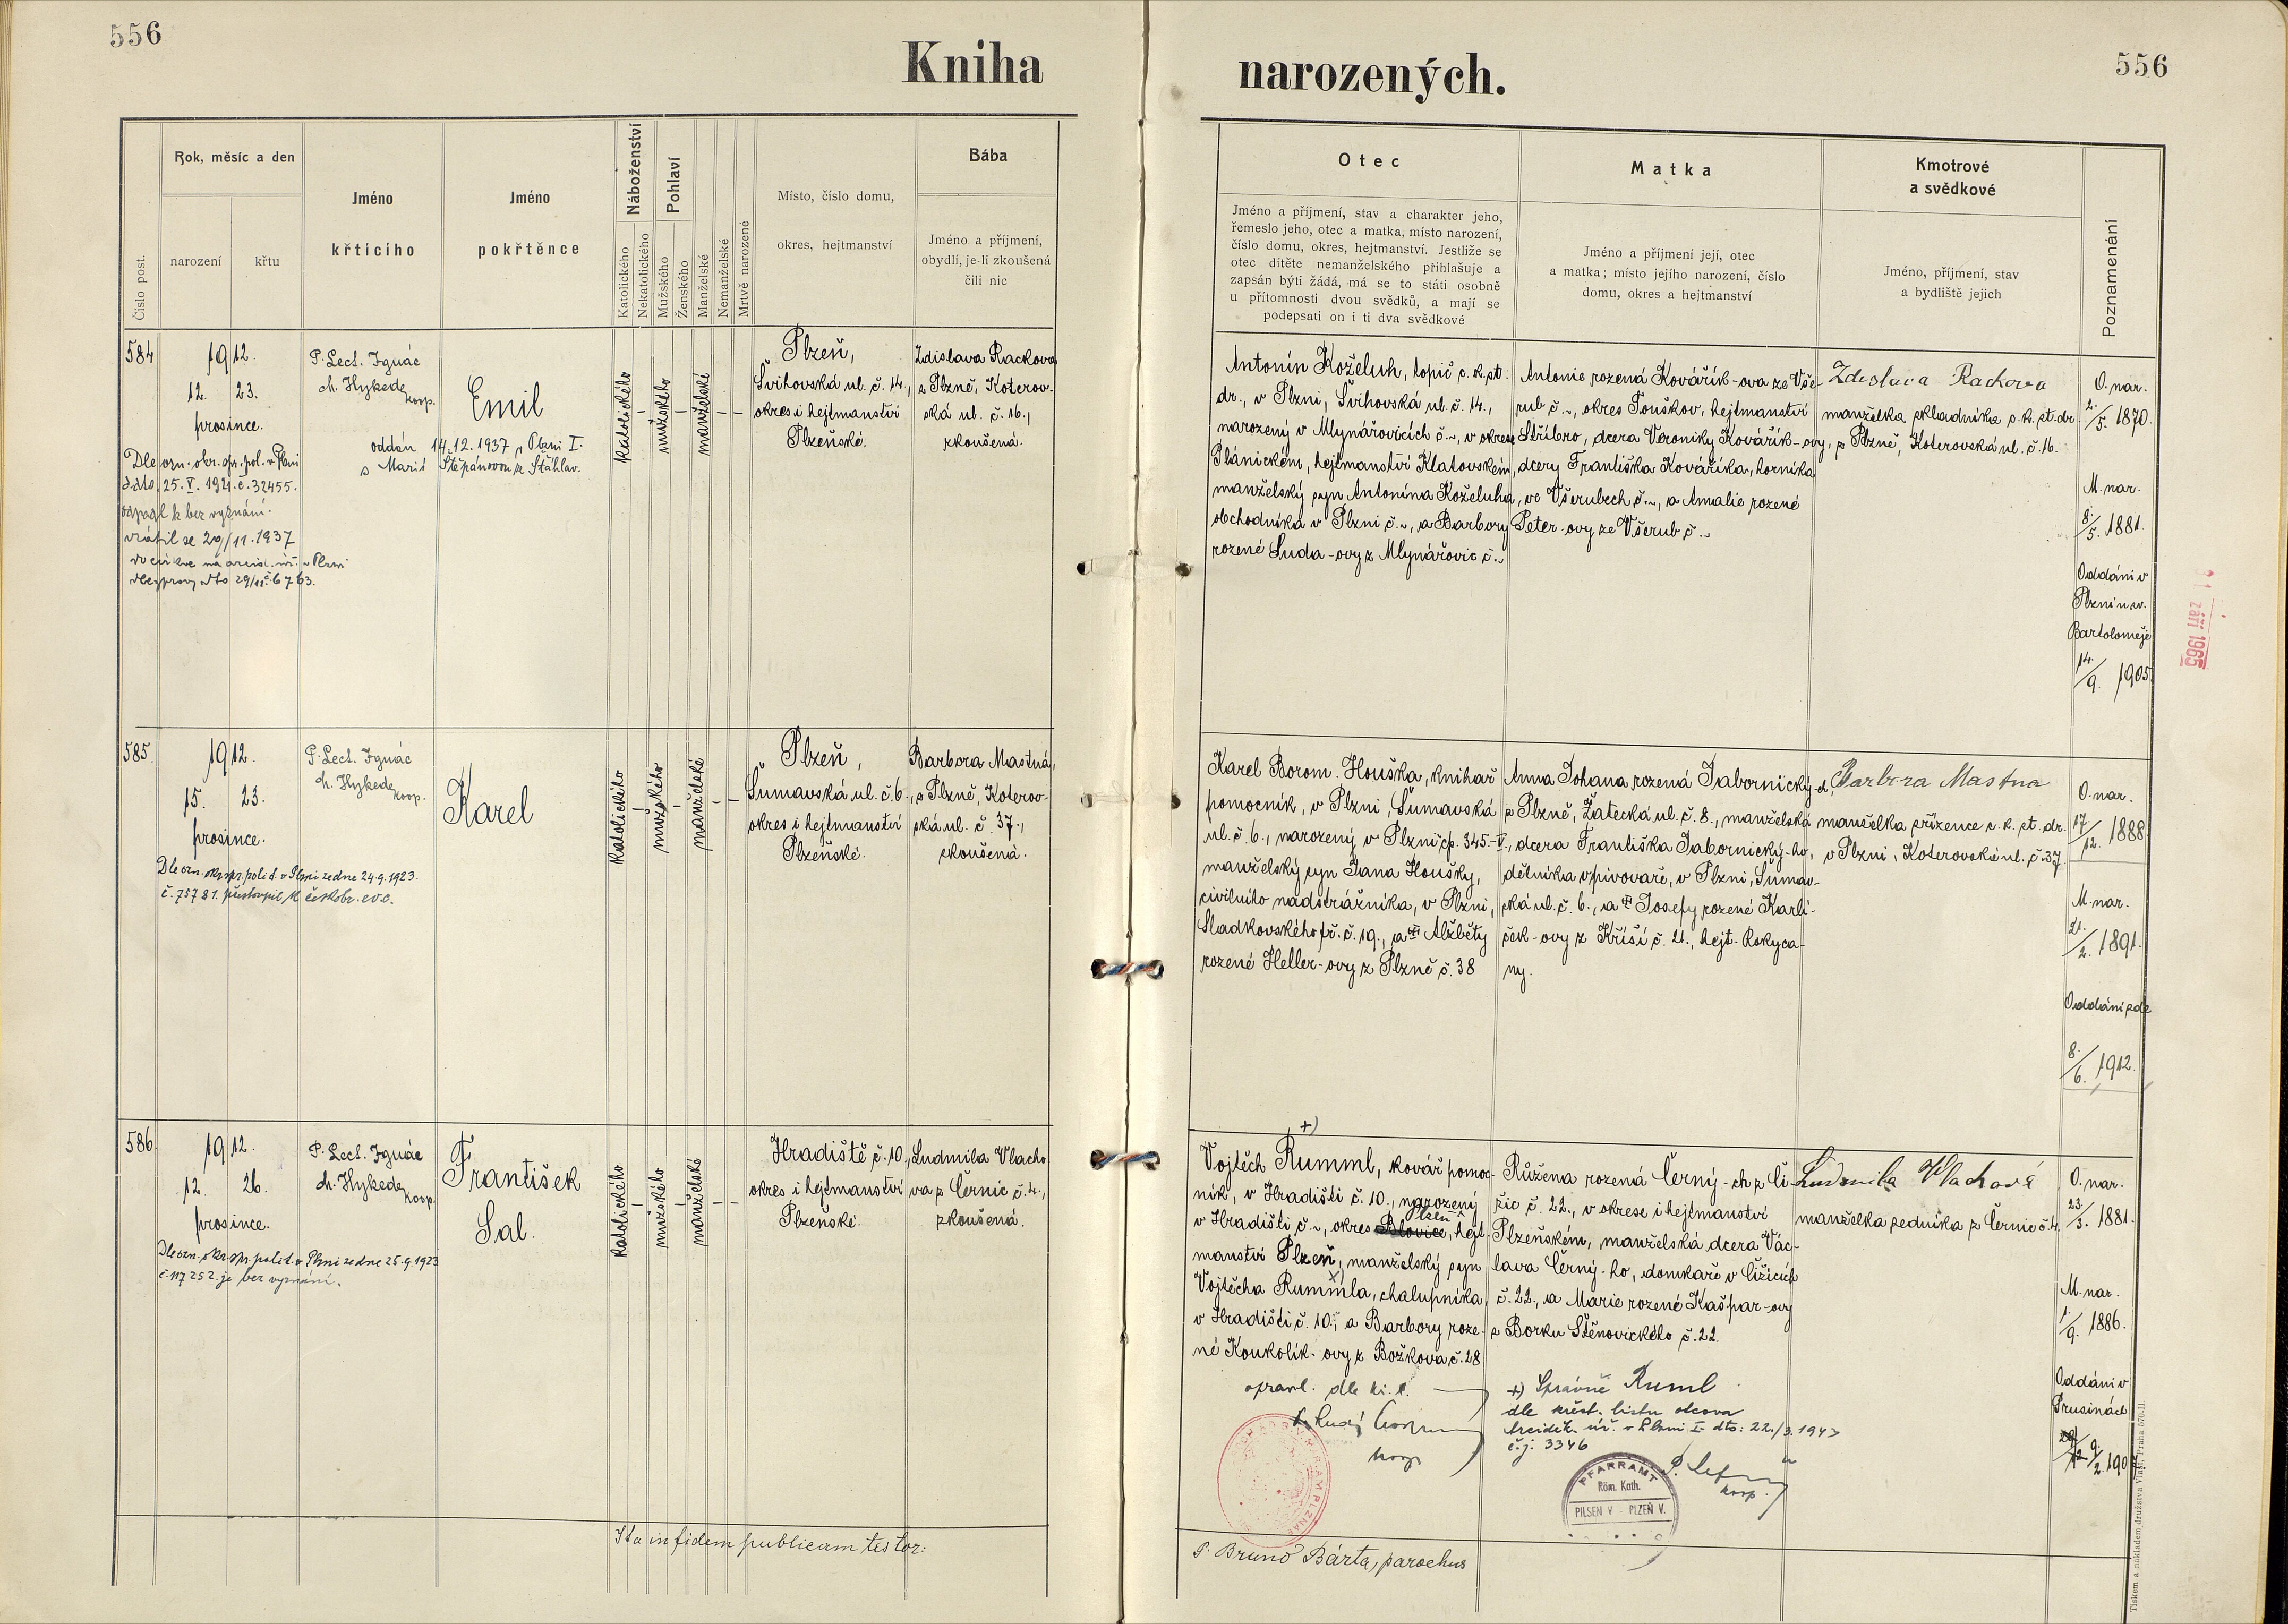 556
Kniha narozených.
556
Číslo post.
Rok, měsíc a den
narození
křtu
Jméno
křticího
Jméno
pokřtěnce
Náboženství
Katolického
Nekatolického
Pohlaví
Mužského
Ženského
Manželské
Nemanželské
Mrtvě narozené
Místo, číslo domu,
okres, hejtmanství
Bába
Jméno a příjmení,
obydlí, je-li zkoušená
čili nic
Otec
Jméno a příjmení, stav a charakter jeho,
řemeslo jeho, otec a matka, místo narození,
číslo domu, okres, hejtmanství. Jestliže se
otec dítěte nemanželského přihlašuje a
zapsán býti žádá, má se to státi osobně
u přítomnosti dvou svědků, a mají se
podepsati on i ti dva svědkové
Matka
Jméno a příjmení její, otec
a matka; místo jejího narození, číslo
domu, okres a hejtmanství
Kmotrové
a svědkové
Jméno, příjmení, stav
a bydliště jejich
Poznamenání
584
1912.
12. 23.
prosince.
Dle ozn. okr. spr. pol. v Plzni
ddto. 25. V. 1921. č. 32455.
odpadl k bez vyznání.
vrátil se 29/11. 1937
P. Lect. Ignác
ch. Hykede
koop.
Emil
oddán 14.12.1937 v Plzni I.
s Marií Štěpánovou ze Šťáhlav.
katolického
–
mužského
–
manželské
–
–
Plzeň,
Švihovská ul. č. 14.,
okres i hejtmanství
Plzeňské.
Zdislava Racková
z Plzně, Koterov-
ská ul. č. 16.,
zkoušená.
Antonín Koželuh, topič c. k. st.
dr., v Plzni, Švihovská ul. č. 14.,
narozený v Mlynářovicích č. ~, v okrese
Plánickém, hejtmanství Klatovském,
manželský syn Antonína Koželuha,
obchodníka v Plzni č. ~, a Barbory
rozené Luda-ovy z Mlynářovic č. ~
Antonie rozená Kovářík-ova ze Vše-
rub č. ~, okres Touškov, hejtmanství
Stříbro, dcera Veroniky Kovářík-ovy,
dcery Františka Kováříka, horníka
ve Všerubech č. ~, a Amalie rozené
Peter-ovy ze Všerub č. ~
Zdeslava Rackova
manželka skladníka c. k. st. dr.
z Plzně, Koterovská ul. č. 16.
O. nar.
2./5. 1870.
M. nar.
8./5. 1881.
Oddáni v
Plzni u sv.
Bartoloměje
14./9. 1905.
září 1965
585.
1912.
15. 23.
prosince.
Dle ozn. okr. spr. polit. v Plzni ze dne 24.9.1923.
č. 75781. přestoupil k českobr. ev. c.
P. Lect. Ignác
ch. Hykede
koop.
Karel
katolického
–
mužského
–
manželské
–
–
Plzeň,
Šumavská ul. č. 6.,
okres i hejtmanství
Plzeňské.
Barbora Mastná,
z Plzně, Koterov-
ská ul. č. 37.,
zkoušená.
Karel Borom. Houška, knihař
pomocník, v Plzni, Šumavská
ul. č. 6., narozený v Plzni čp. 345.-V.,
manželský syn Jana Houšky,
civilního nadstrážníka, v Plzni,
Sladkovského tř. č. 19., a Alžběty
rozené Heller-ovy z Plzně č. 38
Anna Johana rozená Tabornický-ch
z Plzně, Žatecká ul. č. 8., manželská
dcera Františka Tabornický-ho,
dělníka v pivovaře, v Plzni, Šumav-
ská ul. č. 6., a Josefy rozené Karlí-
ček-ovy z Kříší č. 21., hejt. Rokyca-
ny.
Barbora Mastna
manželka zřízence c. k. st. dr.
v Plzni, Koterovská ul. č. 37.
O. nar.
17./12. 1888.
M. nar.
21./2. 1891.
Oddáni zde
8./6. 1912.
586.
1912.
12. 26.
prosince.
Dle ozn. okr. spr. polit. v Plzni ze dne 25.9.1923
č. 117252. je bez vyznání.
P. Lect. Ignác
ch. Hykede
koop.
František
Sal.
katolického
–
mužského
–
manželské
–
–
Hradiště č. 10.,
okres i hejtmanství
Plzeňské.
Ludmila Vlacho
va z Černic č. 4.,
zkoušená.
+)
Vojtěch Rumml, kovář pomoc-
ník, v Hradišti č. 10., narozený
v Hradišti č. ~, okres Blovice, Plzeň hejt-
manství Plzeň, manželský syn
Vojtěcha Rummla, chalupníka,
v Hradišti č. 10., a Barbory roze-
né Koukolík-ovy z Božkova č. 28
opravl. dle kř. l.
koop
Růžena rozená Černý-ch z Či-
žic č. 22., v okrese i hejtmanství
Plzeňském, manželská dcera Vác-
lava Černý-ho, domkaře v Čižicích
č. 22., a Marie rozené Kašpar-ovy
z Borku Štěnovického č. 22.
+) Správně Ruml
dle křest. listu otcova
Arciděk. úř. v Plzni I. dto: 22./3. 1943
č.j. 3346
koop.
PFARRAMT
Röm. Kath.
PILSEN V - PLZEŇ V.
Ludmila Vlachová
manželka zedníka z Černic č. 4.
O. nar.
23./3. 1881.
M. nar.
1./9. 1886.
Oddáni v
Prusinách
Ita in fidem publicam testor:
P. Bruno Bárta, parochus
Tiskem a nákladem družstva Vlasť, Praha 570-II.